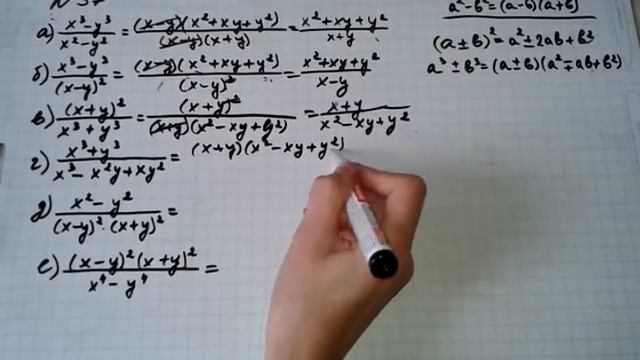 а) x³-y³/x²-y² = (x-y)(x²+xy+y²)/(x-y)(x+y) = x²+xy+y²/x+y
б) x³-y³/(x-y)² = (x-y)(x²+xy+y²)/(x-y)² = x²+xy+y²/x-y
в) (x+y)²/x³+y³ = (x+y)²/(x+y)(x²-xy+y²) = x+y/x²-xy+y²
г) x³+y³/x³-x²y+xy² = (x+y)(x²-xy+y²)
д) x²-y²/(x-y)²·(x+y)² =
е) (x-y)²(x+y)²/x⁴-y⁴ =
a²-b²=(a-b)(a+b)
(a±b)²=a²±2ab+b²
a³±b³=(a±b)(a²∓ab+b²)